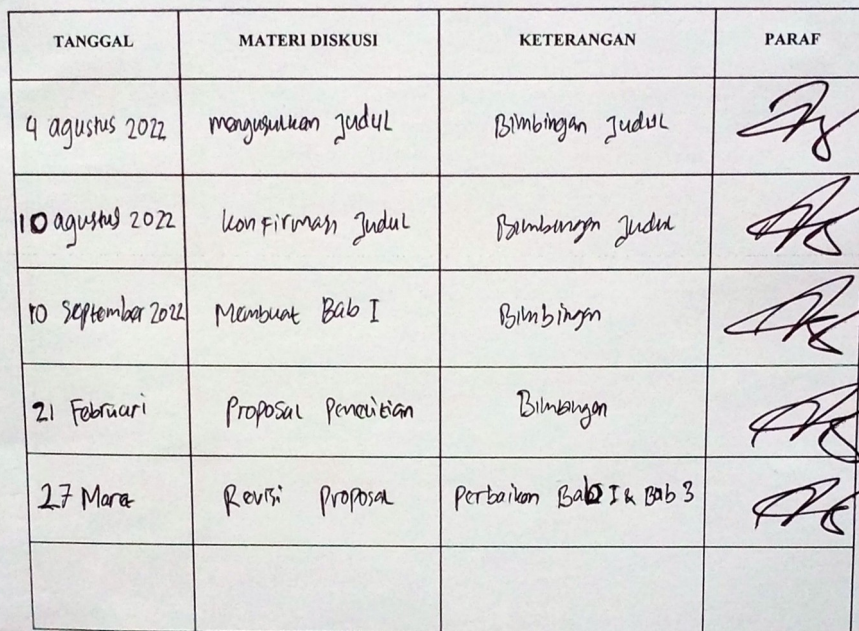 TANGGAL MATERI DISKUSI KETERANGAN PARAF
4 agustus 2022 mengusulkan Judul Bimbingan Judul
10 agustus 2022 konfirmasi Judul Bimbingan Judul
10 September 2022 Membuat Bab I Bimbingan
21 Februari Proposal Penelitian Bimbingan
27 Maret Revisi Proposal Perbaikan Bab I & Bab 3